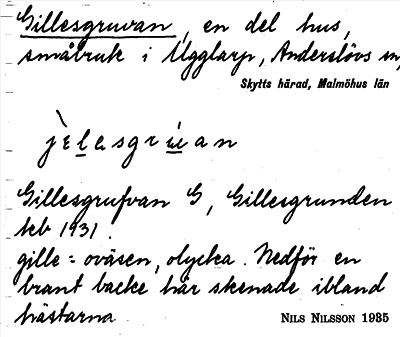 Gillesgruvan, en del hus,
småbruk i Ugglarp, Anderslövs sn,
Skytts härad, Malmöhus län
jèlesgrúan
Gillesgrufvan G, Gillesgrunden
teb 1931.
gille = oväsen, olycka. Nedför en
brant backe här skenade ibland
hästarna
NILS NILSSON 1935